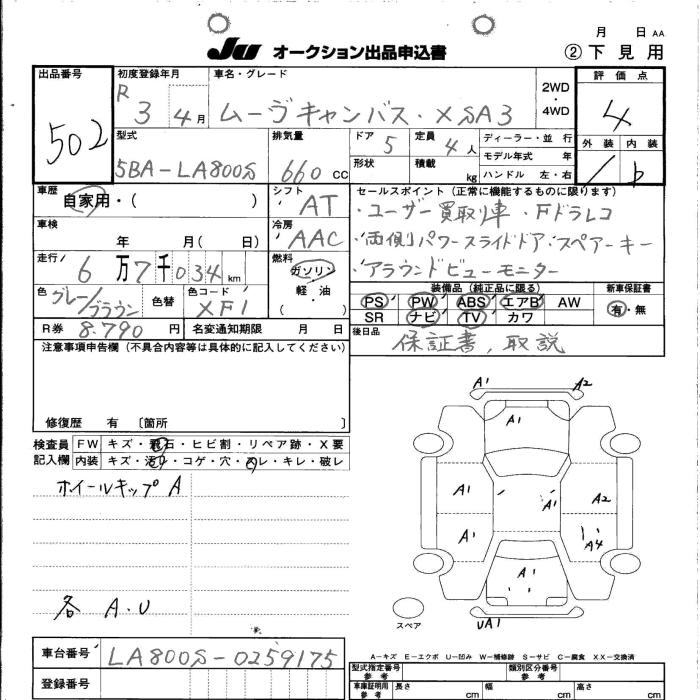 月 日 AA
JU オークション出品申込書 ②下見用
出品番号 502
初度登録年月 R 3 4月
車名・グレード ムーヴキャンバス・XSA3
2WD・4WD
評価点 4
外装 内装 b
型式 5BA-LA800S
排気量 660 CC
ドア 5
定員 4人
形状
積載 kg
ディーラー・並 行
モデル年式 年
ハンドル 左・右
車歴 自家用・( )
シフト AT
セールスポイント(正常に機能するものに限ります)
・ユーザー買取り車・Fドラレコ
・両側パワースライドドア・スペアーキー
・アラウンドビューモニター
車検 年 月( 日)
冷房 AAC
走行 6万7千034km
燃料 ガソリン・軽油
色 グレー/ブラウン
色替
色コード XF1
装備品(純正品に限る)
新車保証書 有・無
PS PW ABS エアB AW
SR ナビ TV カワ
R券 8.790 円
名変通知期限 月 日
後日品 保証書, 取説
注意事項申告欄(不具合内容等は具体的に記入してください)
修復歴 有 〔箇所 〕
検査員記入欄
FW キズ・飛石・ヒビ割・リペア跡・X要
内装 キズ・汚れ・コゲ・穴・スレ・キレ・破レ
ホイールキップ A
各 A.U
A1 A2
A1
A1 A1 A2
A1 A4
A1
UA1
スペア
A-キズ E-エクボ U-凹み W-補修跡 S-サビ C-腐食 XX-交換済
車台番号 LA800S-0259175
登録番号
型式指定番号 参考
類別区分番号 参考
車庫証明用 参考 長さ cm 幅 cm 高さ cm